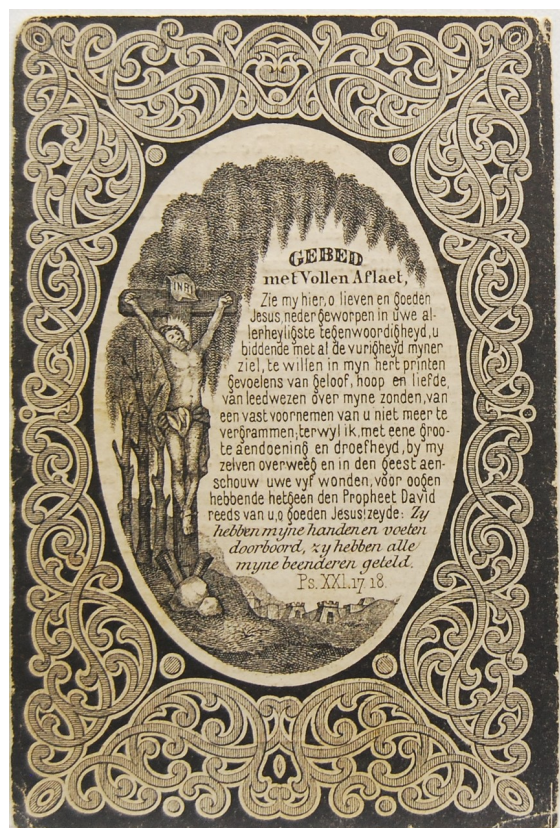 INRI
GEBED
met Vollen Aflaet,
Zie my hier, o lieven en goeden
Jesus, neder geworpen in uwe al-
lerheyligste tegenwoordigheyd, u
biddende met al de vurigheyd myner
ziel, te willen in myn hert printen
gevoelens van geloof, hoop en liefde,
van leedwezen over myne zonden, van
een vast voornemen van u niet meer te
vergrammen; terwyl ik, met eene groo-
te aendoening en droefheyd, by my
zelven overweeg en in den geest aen-
schouw uwe vyf wonden, voor oogen
hebbende hetgeen den Propheet David
reeds van u, o goeden Jesus! zeyde: Zy
hebben myne handen en voeten
doorboord, zy hebben alle
myne beenderen geteld.
Ps. XXI. 17 18.